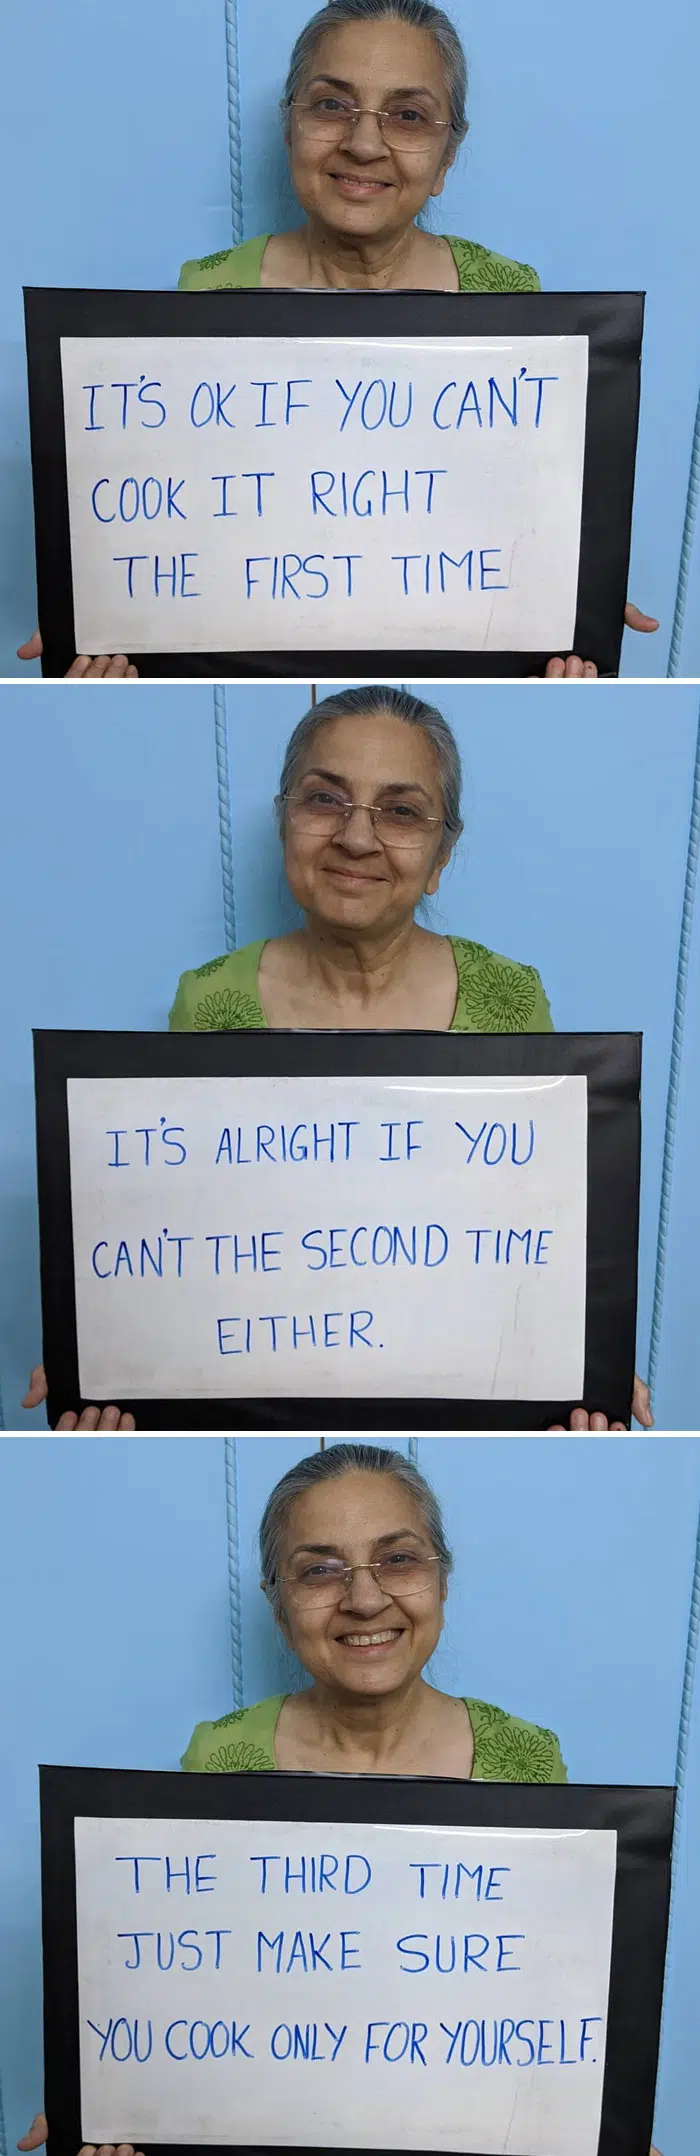 IT'S OK IF YOU CAN'T
COOK IT RIGHT
THE FIRST TIME
IT'S ALRIGHT IF YOU
CAN'T THE SECOND TIME
EITHER.
THE THIRD TIME
JUST MAKE SURE
YOU COOK ONLY FOR YOURSELF.